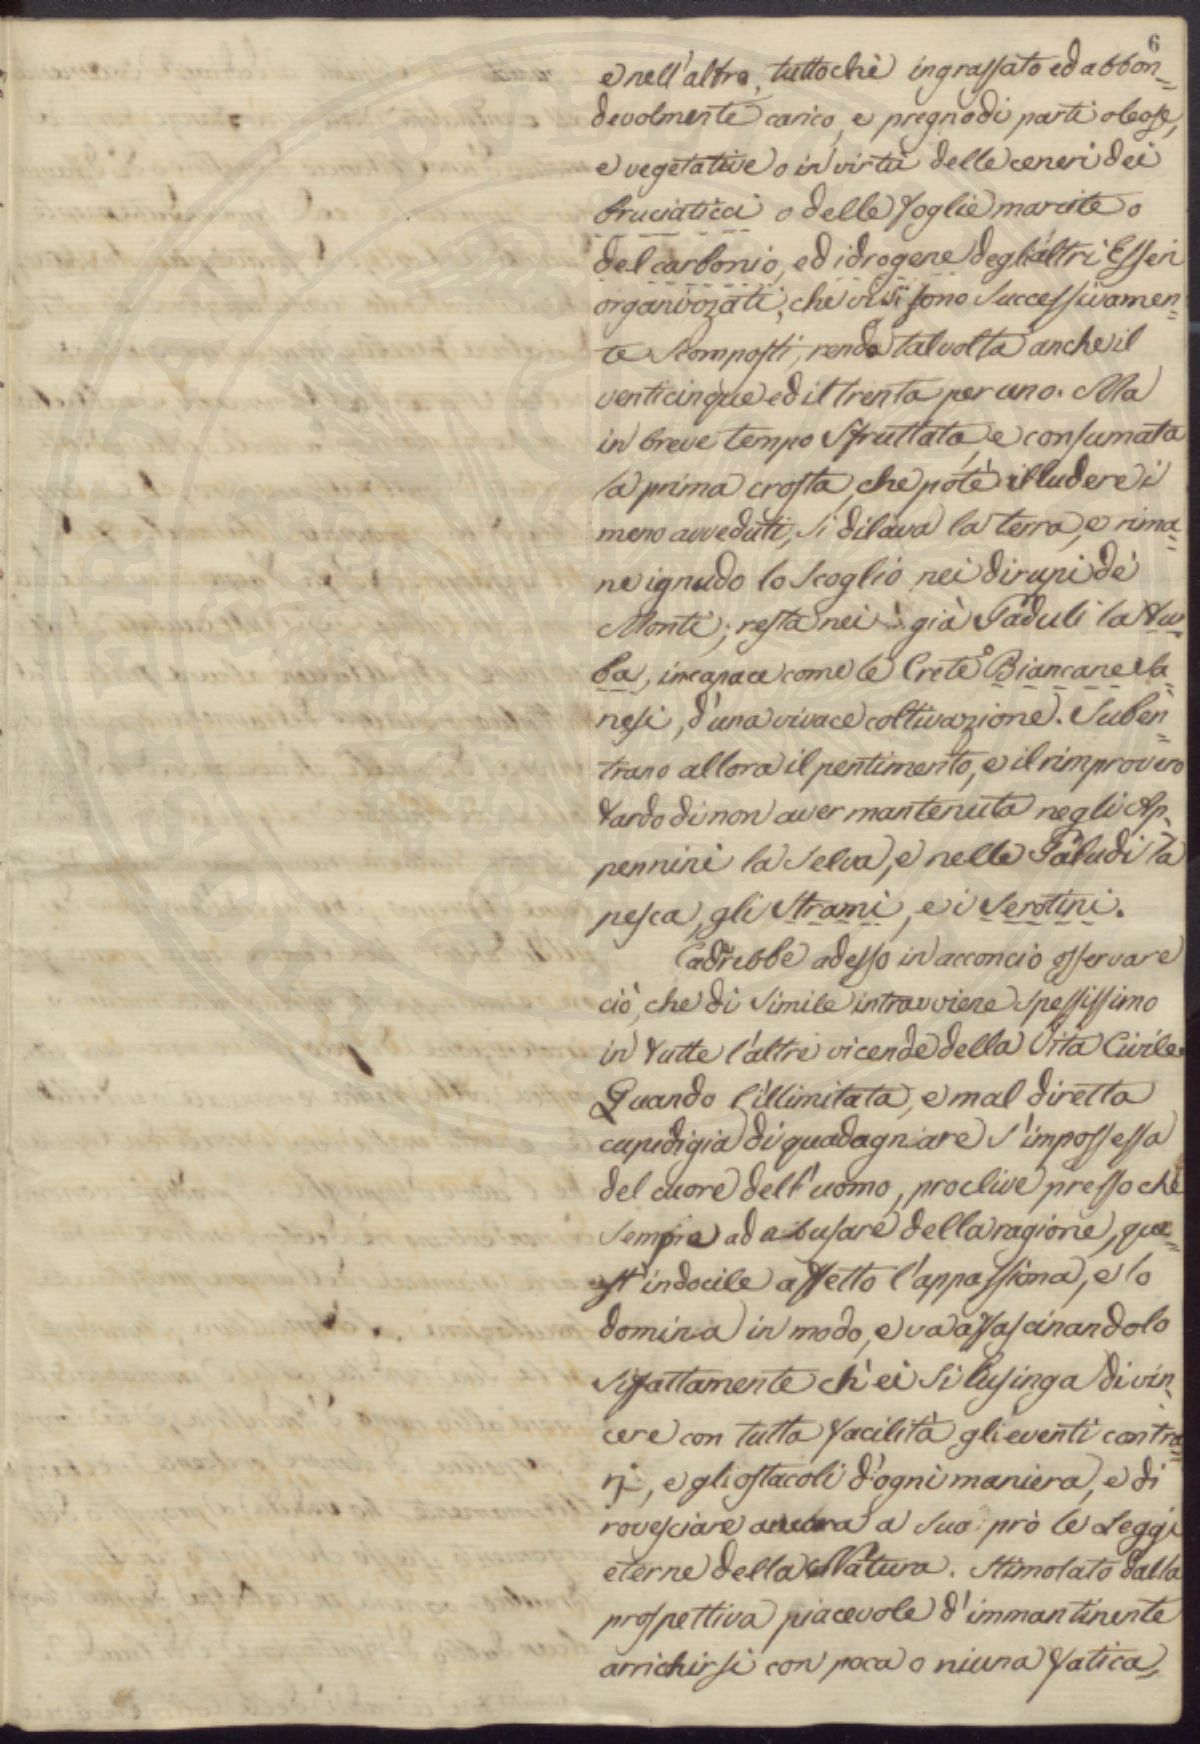 6
e nell'altro, tuttochè ingrassato ed abbon=
devolmente carico, e pregno di parti oleose,
e vegetative o in virtù delle ceneri dei
bruciaticci o delle foglie marcite o
del carbonio, ed idrogene degli altri Esseri
organizzati, che vi si sono successivamen=
te scomposti, rende talvolta anche il
venticinque ed il trenta per uno. Ma
in breve tempo sfruttata, e consumata
la prima crosta, che potè illudere i
meno avveduti, si dilava la terra, e rima=
ne ignudo lo scoglio nei dirupi de'
Monti; resta nei già Paduli la
incapace come le Crete o Biancane Sa=
nesi, d'una vivace coltivazione. Suben=
trano allora il pentimento, e il rimprovero
tardo di non aver mantenuta negli Ap=
pennini la Selva, e nelle Paludi la
pesca, gli Strami, e i Serotini.
Cadrebbe adesso in acconcio osservare
ciò, che di simile intravviene spessissimo
in tutte l'altre vicende della Vita Civile.
Quando l'illimitata, e mal diretta
cupidigia di guadagnare s'impossessa
del cuore dell'uomo, proclive presso che
sempre ad abusare della ragione, que=
st' indocile affetto l'appassiona, e lo
domina in modo, e va affascinandolo
sifattamente ch'ei si lusinga di vin=
cere con tutta facilità gli eventi contra=
rj, e gli ostacoli d'ogni maniera, e di
rovesciare ancora a suo prò le Leggi
eterne della Natura. Stimolato dalla
prospettiva piacevole d'immantinente
arrichirsi con poca o niuna fatica,